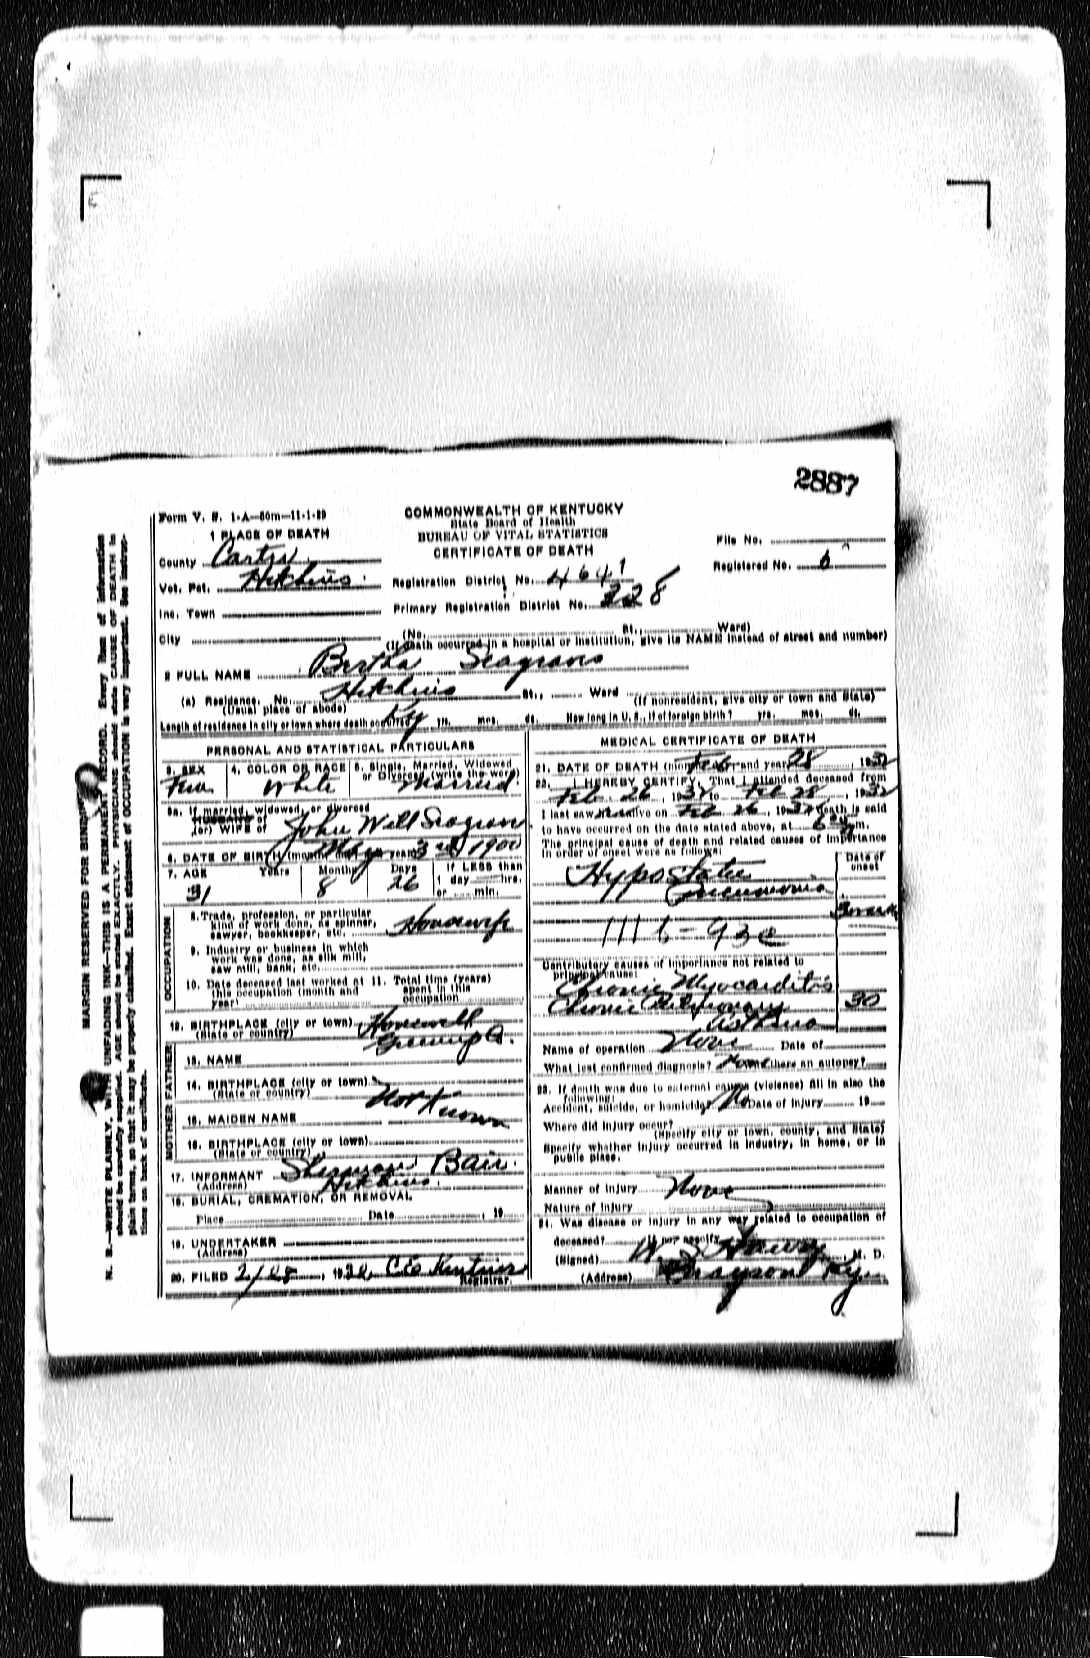 2887
Form V. S. 1-A—50m—11-1-29
COMMONWEALTH OF KENTUCKY
State Board of Health
BUREAU OF VITAL STATISTICS
CERTIFICATE OF DEATH
1 PLACE OF DEATH
County Carter
Vot. Pct. Hitchins
Inc. Town
City
Registration District No. 4641
Primary Registration District No. 228
File No.
Registered No. 6
(No. St., Ward)
(If death occurred in a hospital or institution, give its NAME instead of street and number)
2 FULL NAME Bertha Seagraves
(a) Residence. No. Hitchins St., Ward
(Usual place of abode) Ky (If nonresident, give city or town and State)
Length of residence in city or town where death occurred yrs. mos. ds. How long in U. S., if of foreign birth? yrs. mos. ds.
PERSONAL AND STATISTICAL PARTICULARS
3. SEX 4. COLOR OR RACE 5. Single, Married, Widowed
or Divorced (write the word)
Fem White Married
5a. If married, widowed, or divorced
HUSBAND of
(or) WIFE of John Will Seagraves
6. DATE OF BIRTH (month, day, and year) May 3rd 1900
7. AGE Years Months Days If LESS than
1 day hrs.
or min.
31 8 26
OCCUPATION
8. Trade, profession, or particular
kind of work done, as spinner,
sawyer, bookkeeper, etc. Housewife
9. Industry or business in which
work was done, as silk mill,
saw mill, bank, etc.
10. Date deceased last worked at
this occupation (month and
year)
11. Total time (years)
spent in this
occupation
12. BIRTHPLACE (city or town) Hopewell
(State or country) Greenup Co.
MOTHER FATHER
13. NAME
14. BIRTHPLACE (city or town)
(State or country)
Not Known
15. MAIDEN NAME
16. BIRTHPLACE (city or town)
(State or country)
17. INFORMANT Sherman Bair
(Address) Hitchins
18. BURIAL, CREMATION, OR REMOVAL
Place Date , 19
19. UNDERTAKER
(Address)
20. FILED 2/28, 1932 Registrar.
MEDICAL CERTIFICATE OF DEATH
21. DATE OF DEATH (month, day, and year) Feb 28, 1932
22. I HEREBY CERTIFY, That I attended deceased from
Feb. 26, 1932 to Feb 28, 1932
I last saw alive on Feb 26, 1932 death is said
to have occurred on the date stated above, at 6 m.
The principal cause of death and related causes of importance
in order of onset were as follows:
Date of
onset
Hypostatic
Pneumonia
111 b - 93c
Contributory causes of importance not related to
principal cause:
Chronic Myocarditis
Chronic Pulmonary 30
Asthma
Name of operation None Date of
What test confirmed diagnosis? None Was there an autopsy?
23. If death was due to external causes (violence) fill in also the
following:
Accident, suicide, or homicide? No Date of injury 19
Where did injury occur?
(Specify city or town, county, and State)
Specify whether injury occurred in industry, in home, or in
public place.
Manner of injury None
Nature of injury
24. Was disease or injury in any way related to occupation of
deceased? If so, specify
(Signed) M. D.
(Address) Grayson Ky
MARGIN RESERVED FOR BINDING
N. B.—WRITE PLAINLY, WITH UNFADING INK—THIS IS A PERMANENT RECORD. Every item of information
should be carefully supplied. AGE should be stated EXACTLY. PHYSICIANS should state CAUSE OF DEATH in
plain terms, so that it may be properly classified. Exact statement of OCCUPATION is very important. See instruc-
tions on back of certificate.